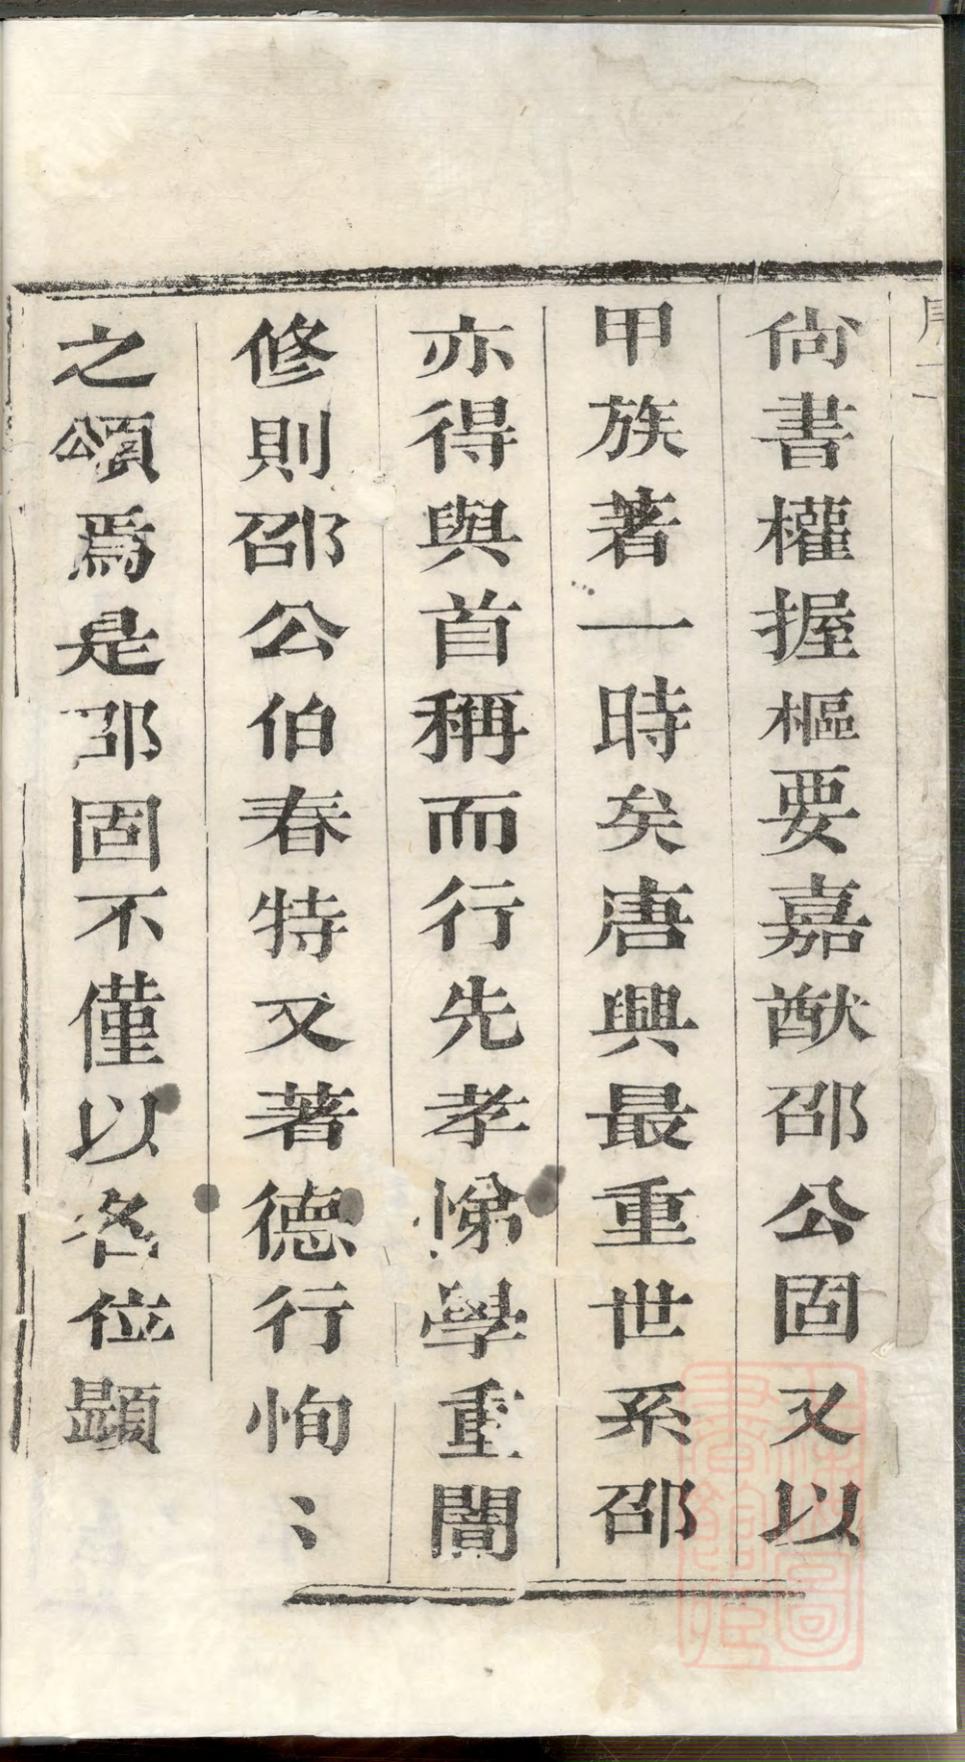 尙書權握樞要嘉猷邵公固又以
甲族著一時矣唐興最重世系邵
亦得與首稱而行先孝悌學重闇
修則邵公伯春特又著德行恂〻
之頌焉是邵固不僅以名位顯